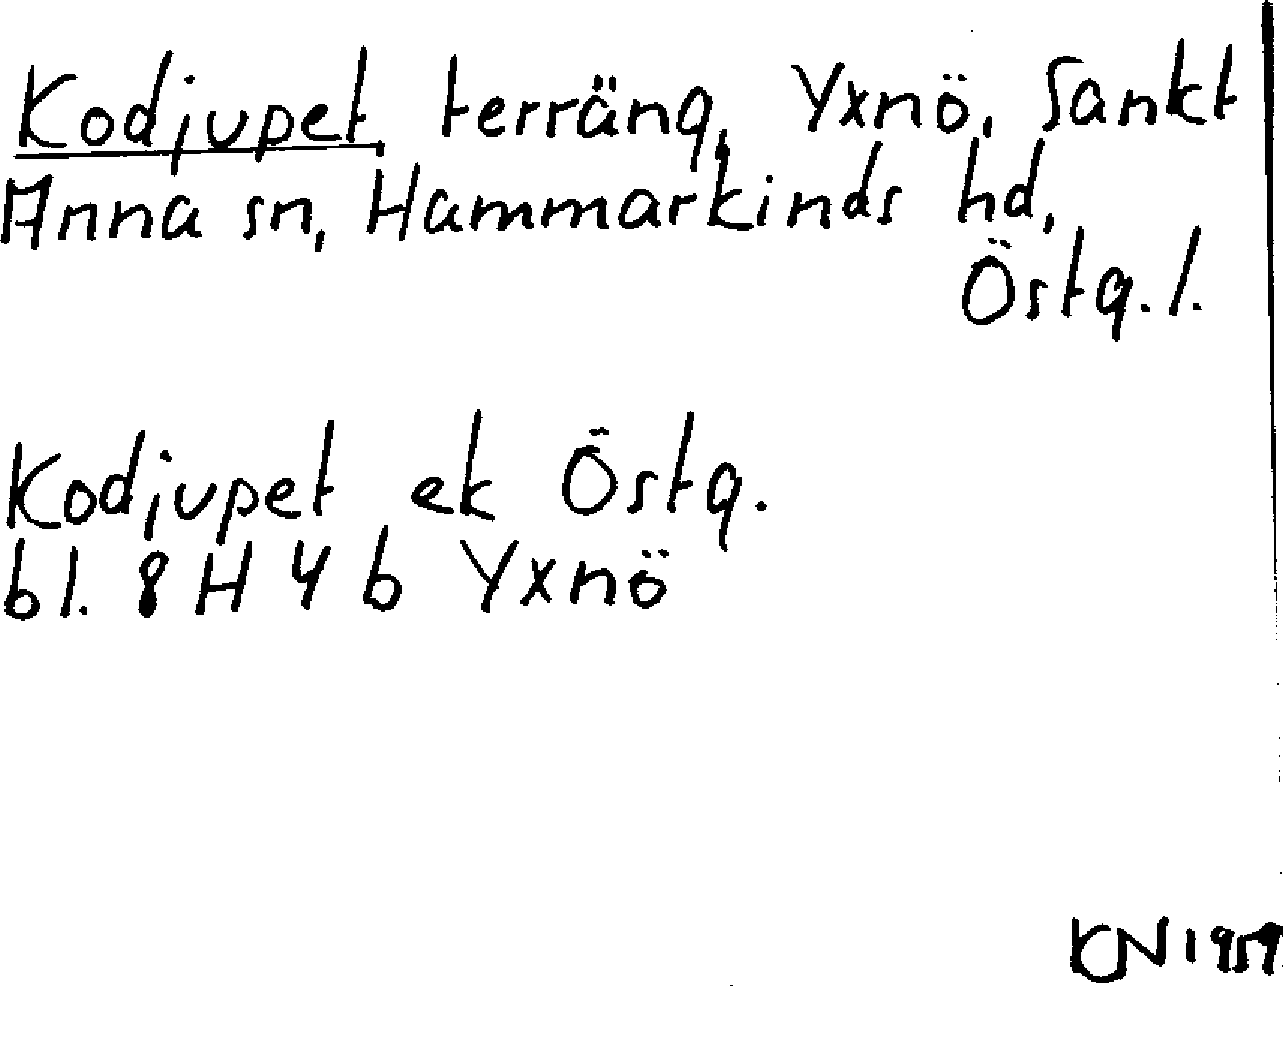 Kodjupet, terräng, Yxnö, Sankt
Anna sn, Hammarkinds hd,
Östg. l.
Kodjupet ek Östg.
bl. 8 H 4 b Yxnö
KN 1959